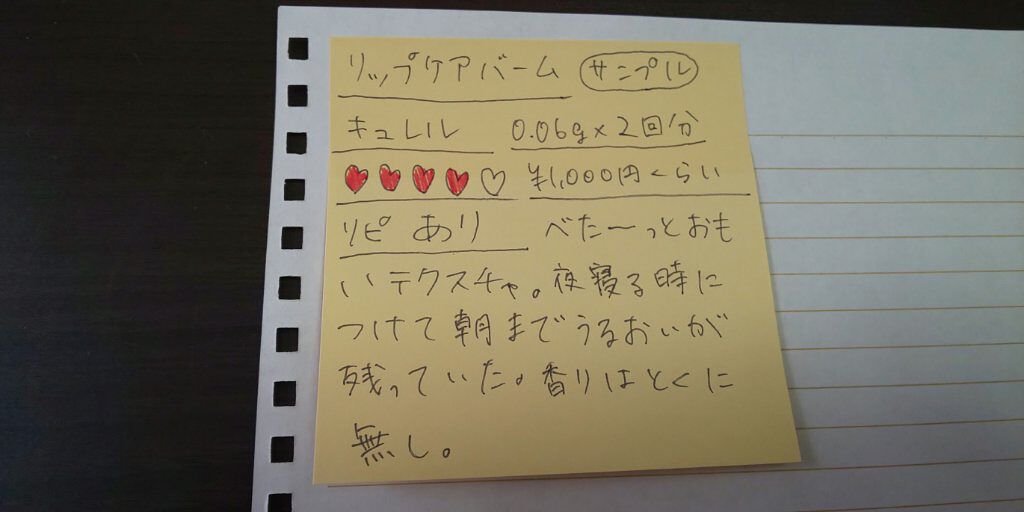 リップケアバーム サンプル
キュレル 0.06g×2回分
♥♥♥♥♡ ¥1,000円くらい
リピ あり べたーっとおも
いテクスチャ。夜寝る時に
つけて朝までうるおいが
残っていた。香りはとくに
無し。